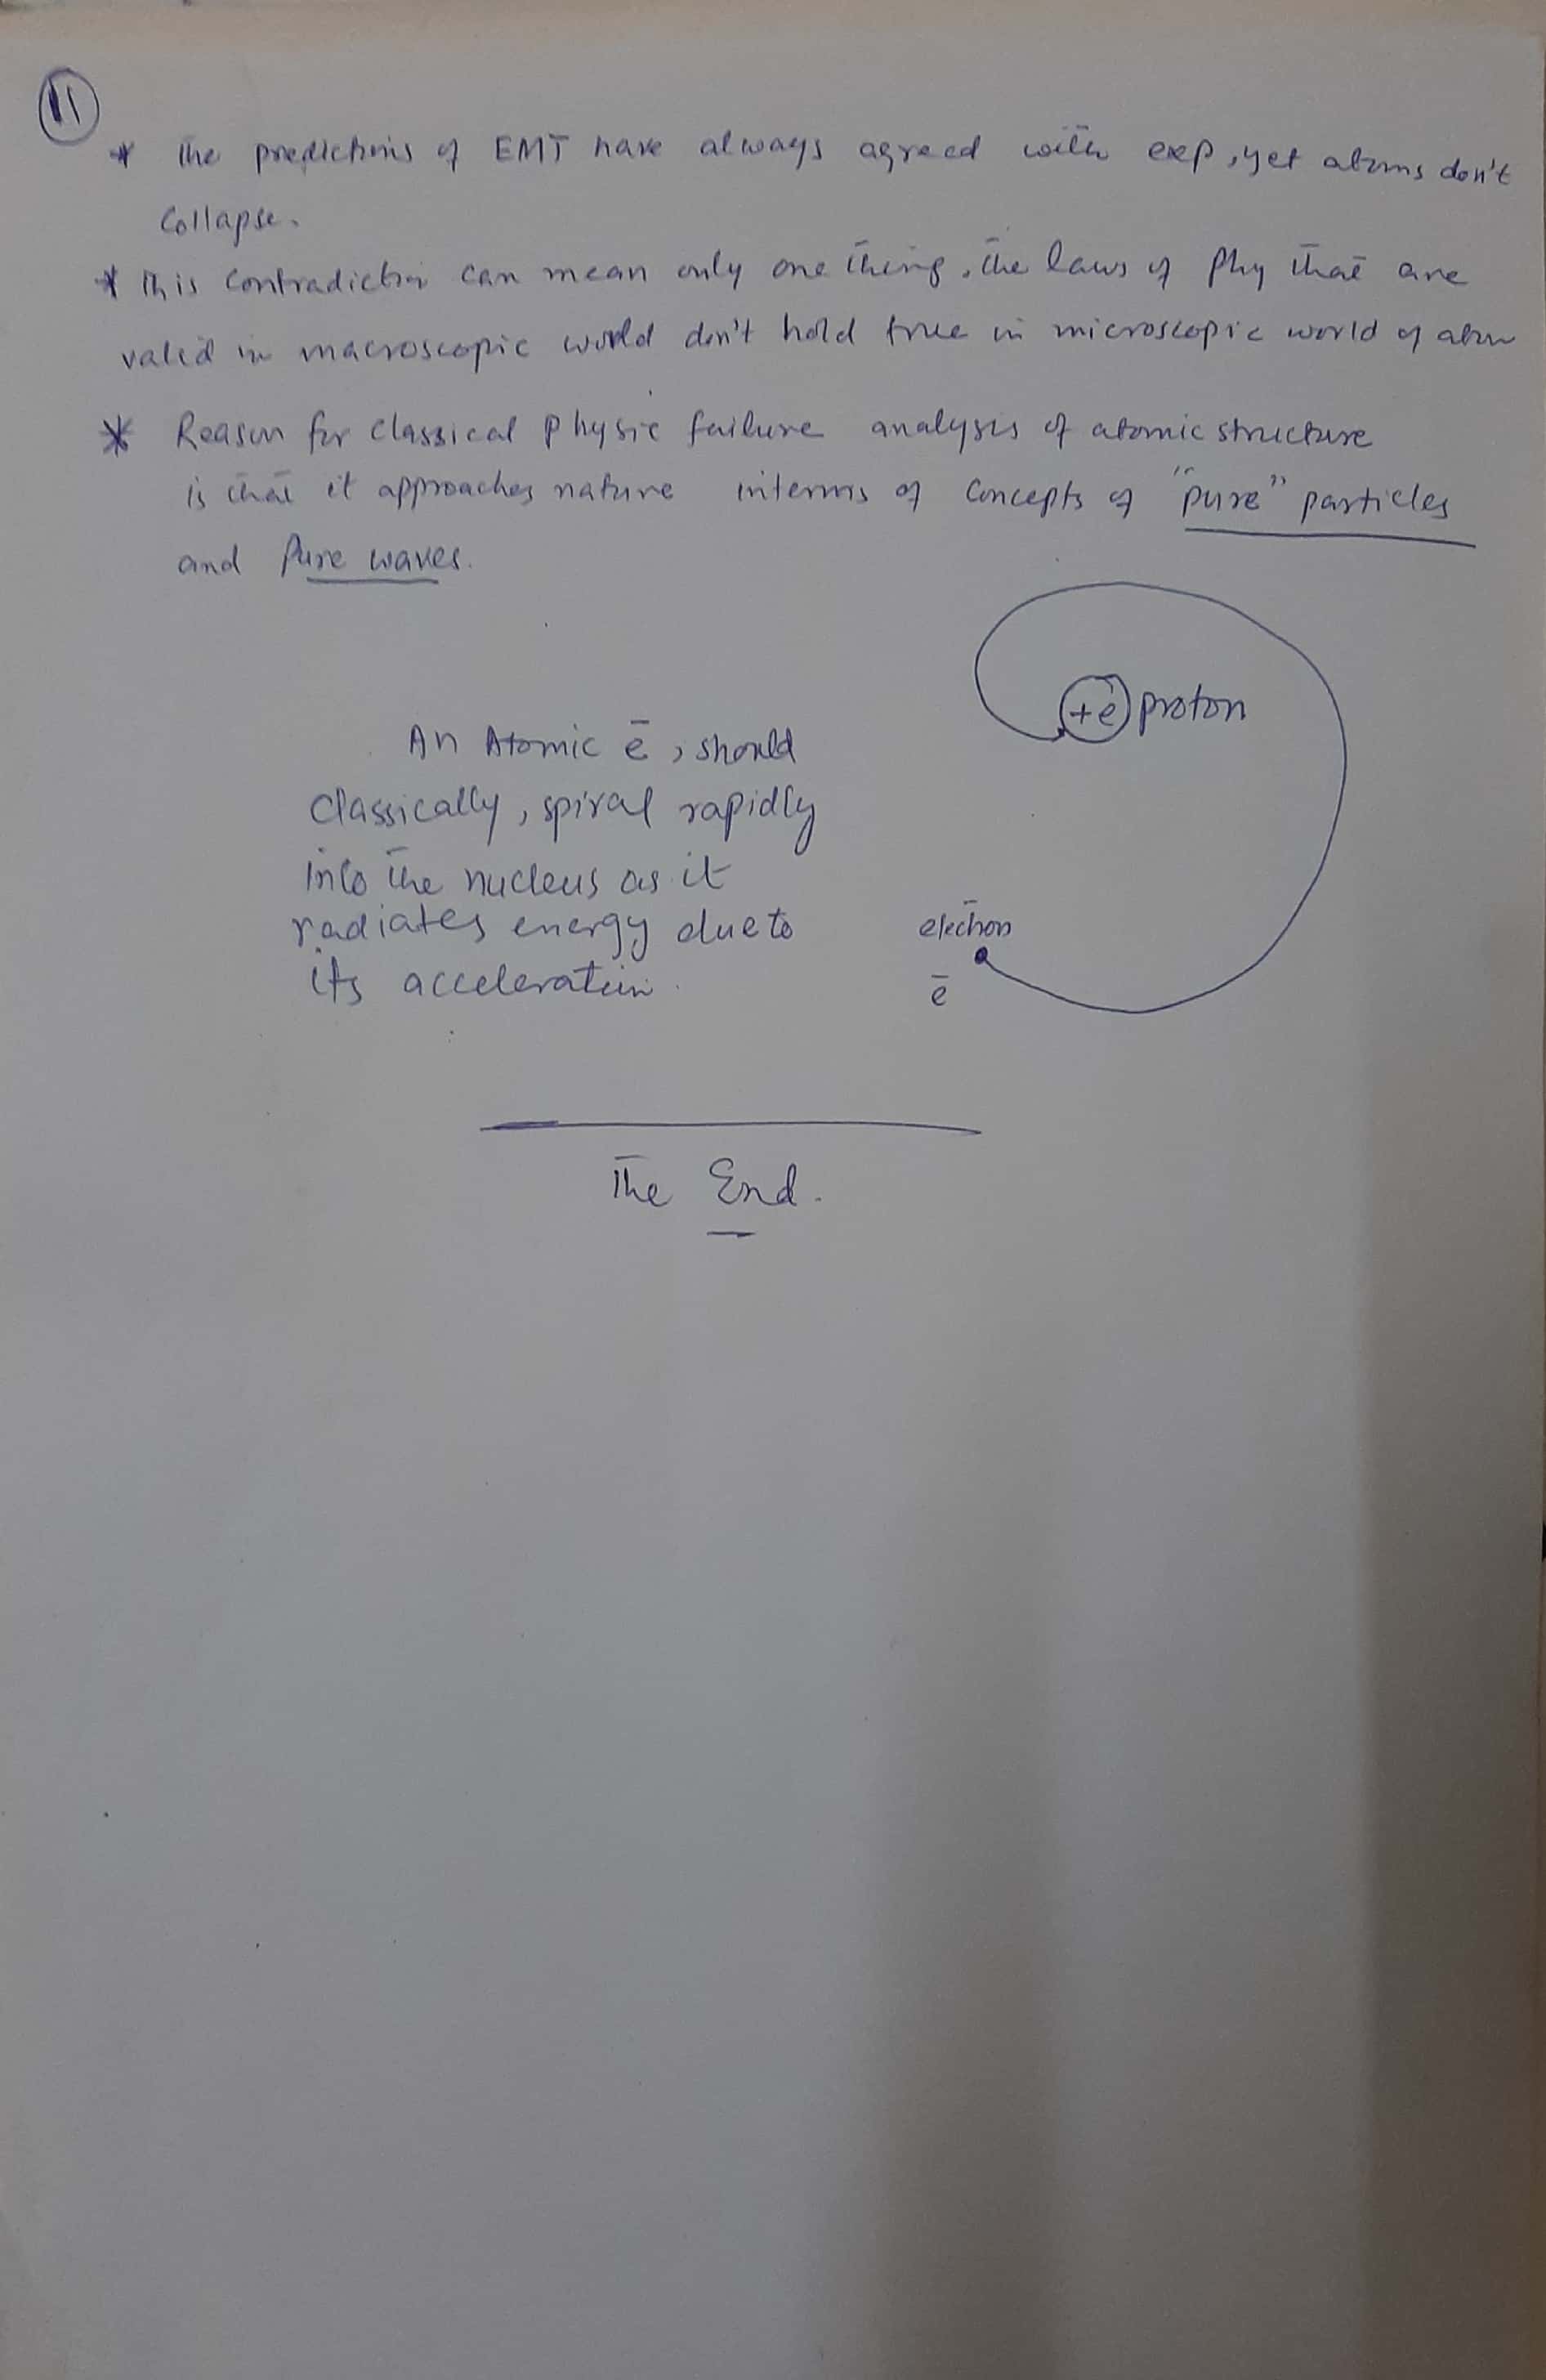 11
* The predictions of EMT have always agreed with exp, yet atoms don't
Collapse.
* This Contradiction can mean only one thing, the laws of Phy that are
valid in macroscopic world don't hold true in microscopic world of atom
* Reason for Classical Physic failure analysis of atomic structure
is that it approaches nature interms of Concepts of "pure" particles
and Pure waves.
+e proton
An Atomic ē, should
Classically, spiral rapidly
into the nucleus as it
radiates energy due to
its acceleration.
electron
ē
The End.